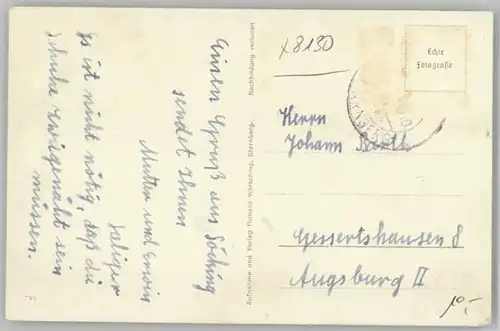 Einen Gruß aus Söcking
sendet Ihnen
Mutter und Erwin
Saliger
Es ist nicht nötig, daß die
Schuhe zwiegenäht sein
müssen.
Nachbildung verboten
Aufnahme und Verlag Thomas Wörsching, Starnberg.
x8130
Echte
Fotografie
Herrn
Johann
Gessertshausen 8
Augsburg II
10,-